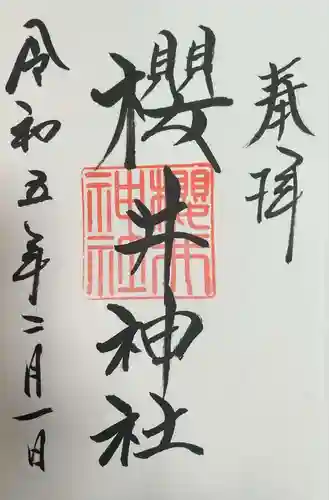 奉拝
櫻井神社
櫻井神社
令和五年二月一日